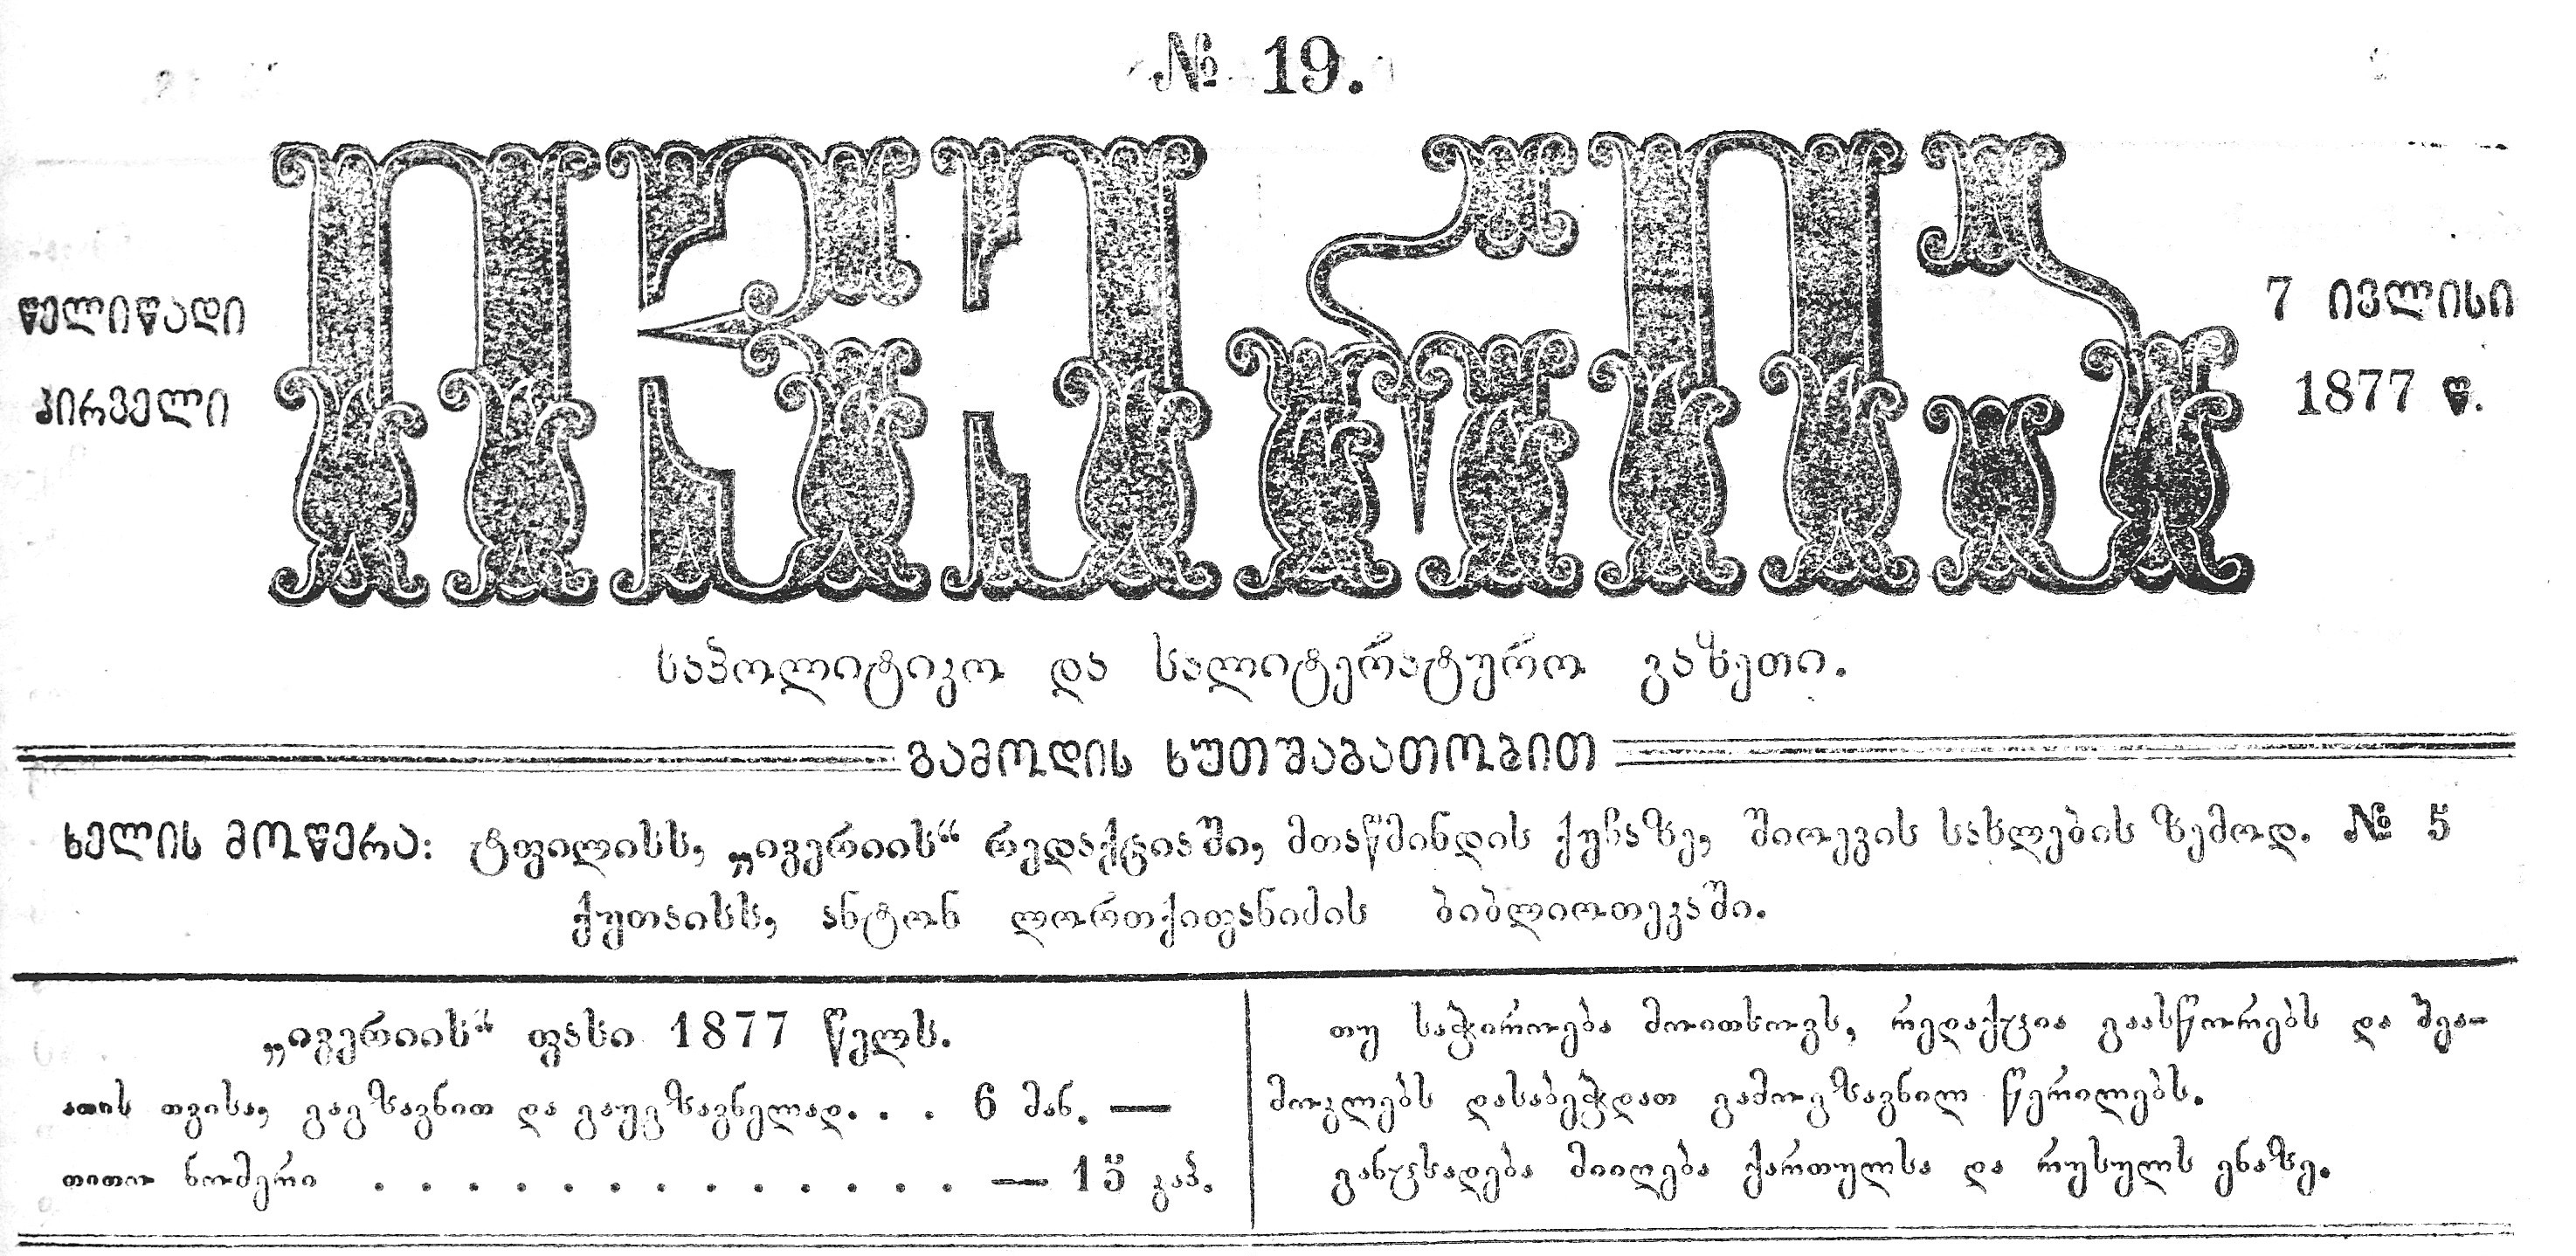 № 19.
ივერია
წელიწადი
პირველი
7 ივლისი
1877 წ.
საპოლიტიკო და სალიტერატურო გაზეთი.
გამოდის ხუთშაბათობით
ხელის მოწერა: ტფილისს, „ივერიის“ რედაქციაში, მთაწმინდის ქუჩაზე, შიოევის სახლების ზემოდ. № 5
ქუთაისს, ანტონ ლორთქიფანიძის ბიბლიოთეკაში.
„ივერიის“ ფასი 1877 წელს.
ათის თვისა, გაგზავნით და გაუგზავნელად. . . 6 მან. —
თითო ნომერი . . . . . . . . . . . . . — 15 კაპ.
თუ საჭიროება მოითხოვს, რედაქცია გაასწორებს და შეა-
მოკლებს დასაბეჭდათ გამოგზავნილ წერილებს.
განცხადება მიიღება ქართულსა და რუსულს ენაზე.